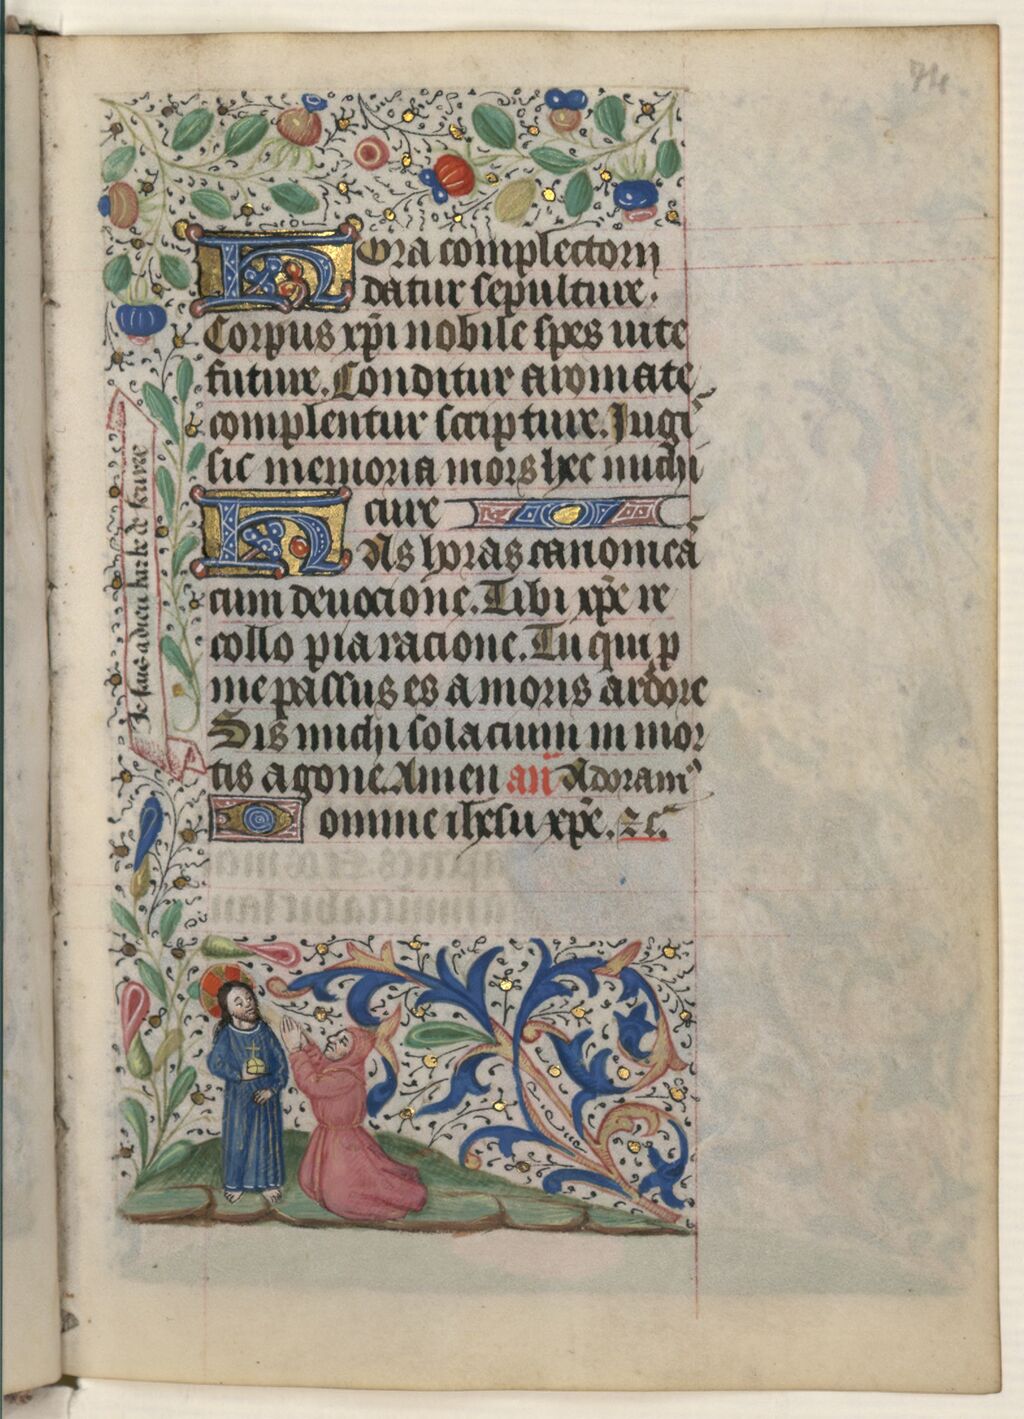 74
Hora completorii
datur sepulture.
Corpus xp̃i nobile spes uite
future. Conditur aromate
complentur scripture. Jugi
sit memoria mors hec michi
cure
Has horas canonicas̃
cum deuocione. Tibi xp̃e re
collo pia racione. Tu qui p
me passus es amoris ardore
Sis michi solacium in mor
tis agone. Amen an̄ Adoram⁹
Domine ihesu xp̃e. ⁊c̃.
Je sauc adieu barbe de